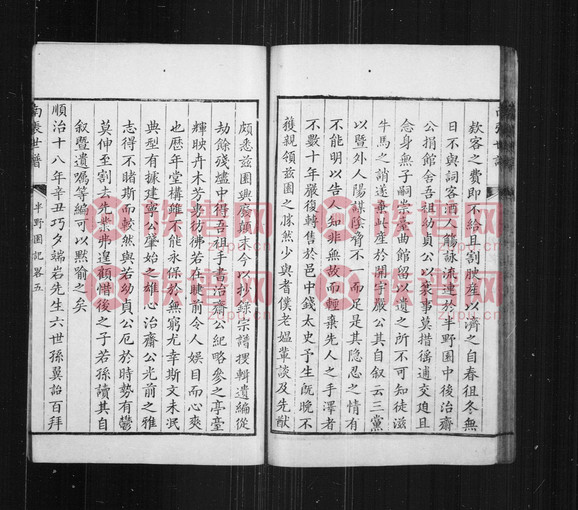 欵客之費即不給且割腴產以濟之自春徂冬無
日不與詞客酒人觴詠流連於半野園中後治齋
公捐館舍吾祖幼貞公以喪事莫措徭逋交迫且
念身無子嗣堂奧曲館留以遺之所不可知徒滋
牛馬之誚遂棄此產於開宇嚴公其自叙云三黨
以暨外人陽謀陰脅不一而足是其隱忍之情有
不能明以告人知非無故而輕棄先人之手澤者
不數十年嚴復轉售於邑中錢太史予生旣晚不
獲親領茲園之勝然少與耆僕老媼輩談及先猷
頗悉茲園興廢顛末今以抄錄宗譜搜輯遺編從
劫餘殘燼中得吾祖手書治齋公紀略參之亭臺
輝映卉木芳菲彷彿若在睫前令人娱目而心爽
也歷年堂構雖不能永保於無窮尤幸斯文未泯
典型有據建寧公肇始之雄治齋公光前之雅
志得不睹斯而較然與若幼貞公厄於時勢有鬱
莫伸至割去先業弗遑顧惜後之子若孫讀其自
叙暨遺囑等編可以黙喻之矣
順治十八年辛丑巧夕端岩先生六世孫翼詒百拜
南張世譜
半野園記畧五
族譜网
zpu.cn